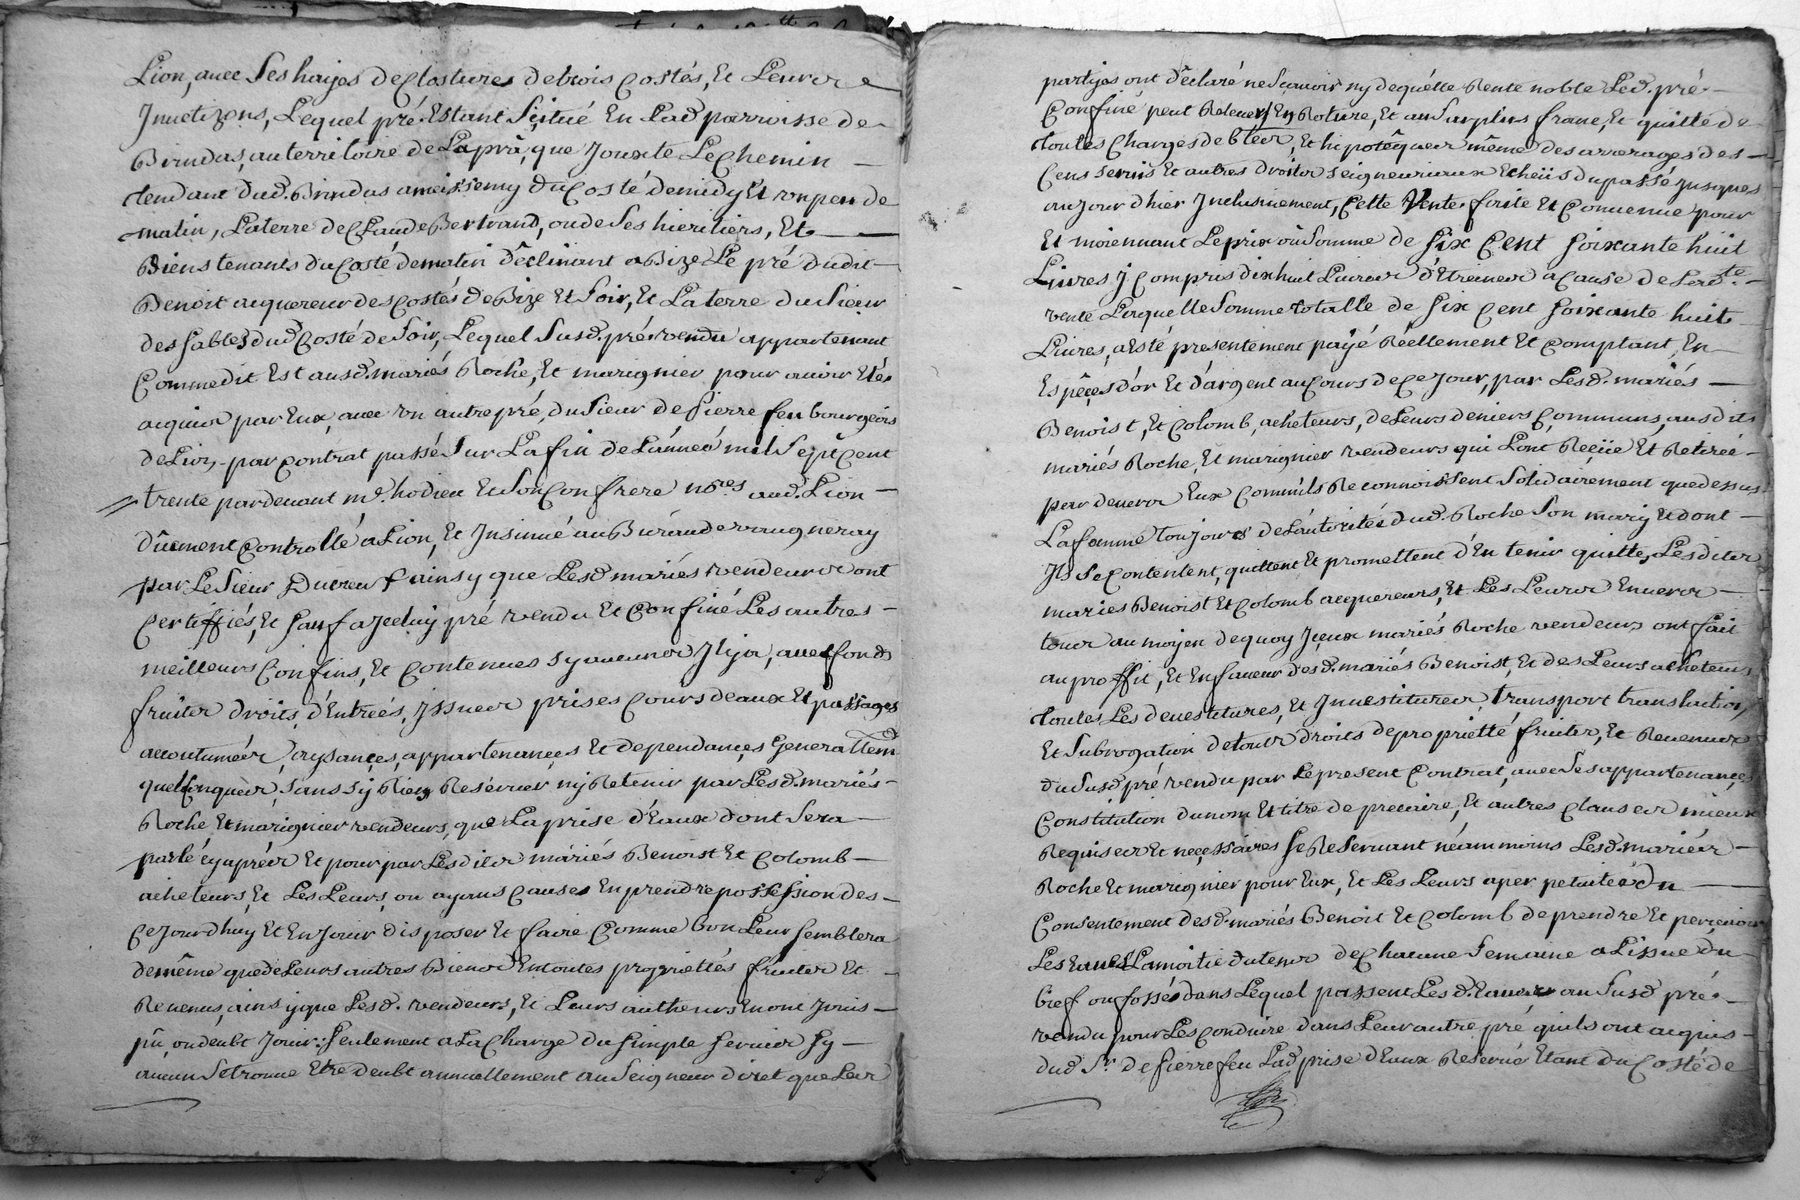 Lion, avec ses hayes de Clostures de trois Costés, Et Leurs
Lequel pré Estant Scitué En Lad. parroisse de
Brindas, au territoire de Lapra, que Jouxte Le Chemin
tendant dud. Brindas a meissemy du Costé de midy Et un peu de
matin, La terre de Claude Bertrand, ou de Ses hieritiers, Et
Biens tenants du Costé de matin déclinant a Bize Le pré dudit
Benoit acquereur des Costés de Bize Et Soir, Et La terre du Sieur
des Sables dud. Costé de Soir, Lequel Susd. pré vendu appartenant
Comme dit Est ausd. mariés Roche, Et marignier pour avoir Eté
acquis par Eux, avec un autre pré, du Sieur de pierre feu bourgeois
de Lion par Contrat passé Sur La fin de L'année mil Sept Cent
trente pardevant me. hodieu Et Son Confrere nores. aud. Lion
dûement Controllé a Lion, Et Insinué au Bureau de vaugneray
par Le Sieur ainsy que Lesd. mariés vendeurs ont
Certiffiés, Et Sauf a Jceluy pré vendu Et Confiné Les autres
meilleurs Confins, Et Contenues Sy aucunes Jl y a, avec fonds
fruits droits, d'Entrées, Jssues prises Cours deaux Et passages
accoutumés, aysances, appartenances Et dependances Generallem.
quelconques, Sans Sy Rien Reserver ny Retenir par Lesd. mariés
Roche Et marignier vendeurs, que La prise d'Eaux dont Sera
parlé cy aprés Et pour par Lesdits mariés Benoist Et Colomb
acheteurs, Et Les Leurs, ou ayans Causes En prendre possession des
Ce Jourdhuy Et En Jouir disposer Et faire Comme bon Leur Semblera
de même que de Leurs autres Biens En toutes proprietés fruits Et
Revenus, ainsy que Lesd. vendeurs, Et Leurs autheurs En ont Jouis
pû, ou deubt Jouir: Seulement a La Charge du Simple Servis Sy
aucun Se trouve Etre deubt annuellement au Seigneur diret que Les
partyes ont déclaré ne Scavoir ny de quelle Rente noble Led. pré
Confiné peut Relever En Roture, Et au Surplus franc, Et quitte de
toutes Charges debtes, Et hipotéques même des arrerages des
Cens servis Et autres droits Seigneuriaux Echeüs du passé Jusques
aujourdhier Inclusivement, Cette Vente faite Et Convenue pour
Et moiennant Le prix ou Somme de Six Cent Soixante huit
Livres y Compris dix huit Livres d'Etreines a Cause de Lad. te.
vente Laquelle Somme totalle de Six Cent Soixante huit
Livres, a Esté presentement payé Réellement Et Comptant, En
Espêces d'or Et d'argent au Cours de Ce Jour, par Lesd. mariés
Benoist, Et Colomb, acheteurs, de Leurs deniers Communs, ausdits
mariés Roche, Et marignier vendeurs qui L'ont Reçüe Et Retirée
par devers Eux Comm'ils Reconnoissent Solidairement que dessus
La femme toujours de L'autorité dud. Roche Son mary Et dont
Jls Se Contentent, quittent Et promettent d'En tenir quittes Lesdits
mariés Benoist Et Colomb acquereurs, Et Les Leurs Envers
tous au moyen dequoy Jceux mariés Roche vendeurs ont fait
au proffit, Et En faveur desd. mariés Benoist, Et des Leurs acheteurs
toutes Les devestitures, Et Investitures, transport translation,
Et Subrogation de tous droits de proprietté fruits, Et Revenus
du Susd. pré vendu par Le present Contrat, avec Ses appartenances
Constitution du nom Et titre de precaire, Et autres Clauses mieux
Requises Et necessaires Se Reservant néanmoins Lesd. mariés
Roche Et marignier pour Eux, Et Les Leurs a perpetuité du
Consentement desd. mariés Benoit Et Colomb de prendre Et percevoir
Les Eaux La moitié du tems de Chacune Semaine a L'issue du
bief ou fossé dans Lequel passent Lesd. Eaux au Susd. pré
vendu pour Les Conduire dans Leur autre pré quils ont acquis
dud. Sr. de pierre feu Lad. prise d'Eaux Reservée Etant du Costé de